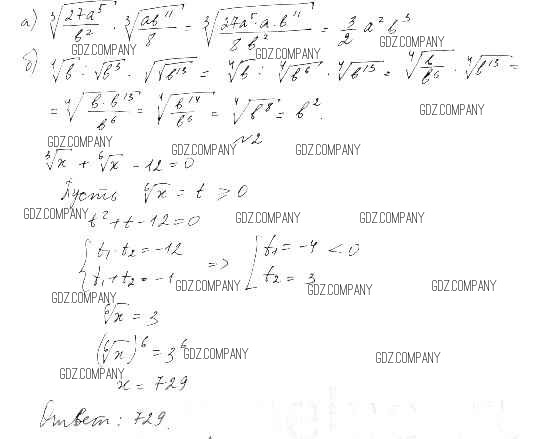 а) ∛(27a⁵/b²) · ∛(ab¹¹/8) = ∛(27a⁵·a·b¹¹/8b²) = 3/2 a² b³
GDZ.COMPANY GDZ.COMPANY GDZ.COMPANY
б) ⁴√b : √b³ · √√b¹³ = ⁴√b : ⁴√b⁶ · ⁴√b¹³ = ⁴√(b/b⁶) · ⁴√b¹³ =
GDZ.COMPANY GDZ.COMPANY
= ⁴√(b·b¹³/b⁶) = ⁴√(b¹⁴/b⁶) = ⁴√b⁸ = b².
GDZ.COMPANY
GDZ.COMPANY GDZ.COMPANY №2 GDZ.COMPANY
∛x + ⁶√x - 12 = 0
Пусть ⁶√x = t ≥ 0
GDZ.COMPANY GDZ.COMPANY GDZ.COMPANY
t² + t - 12 = 0
{ t₁·t₂ = -12 => [ t₁ = -4 < 0
{ t₁ + t₂ = -1 [ t₂ = 3
GDZ.COMPANY GDZ.COMPANY GDZ.COMPANY GDZ.COMPANY
⁶√x = 3
(⁶√x)⁶ = 3⁶
GDZ.COMPANY GDZ.COMPANY
GDZ.COMPANY
x = 729
Ответ: 729.